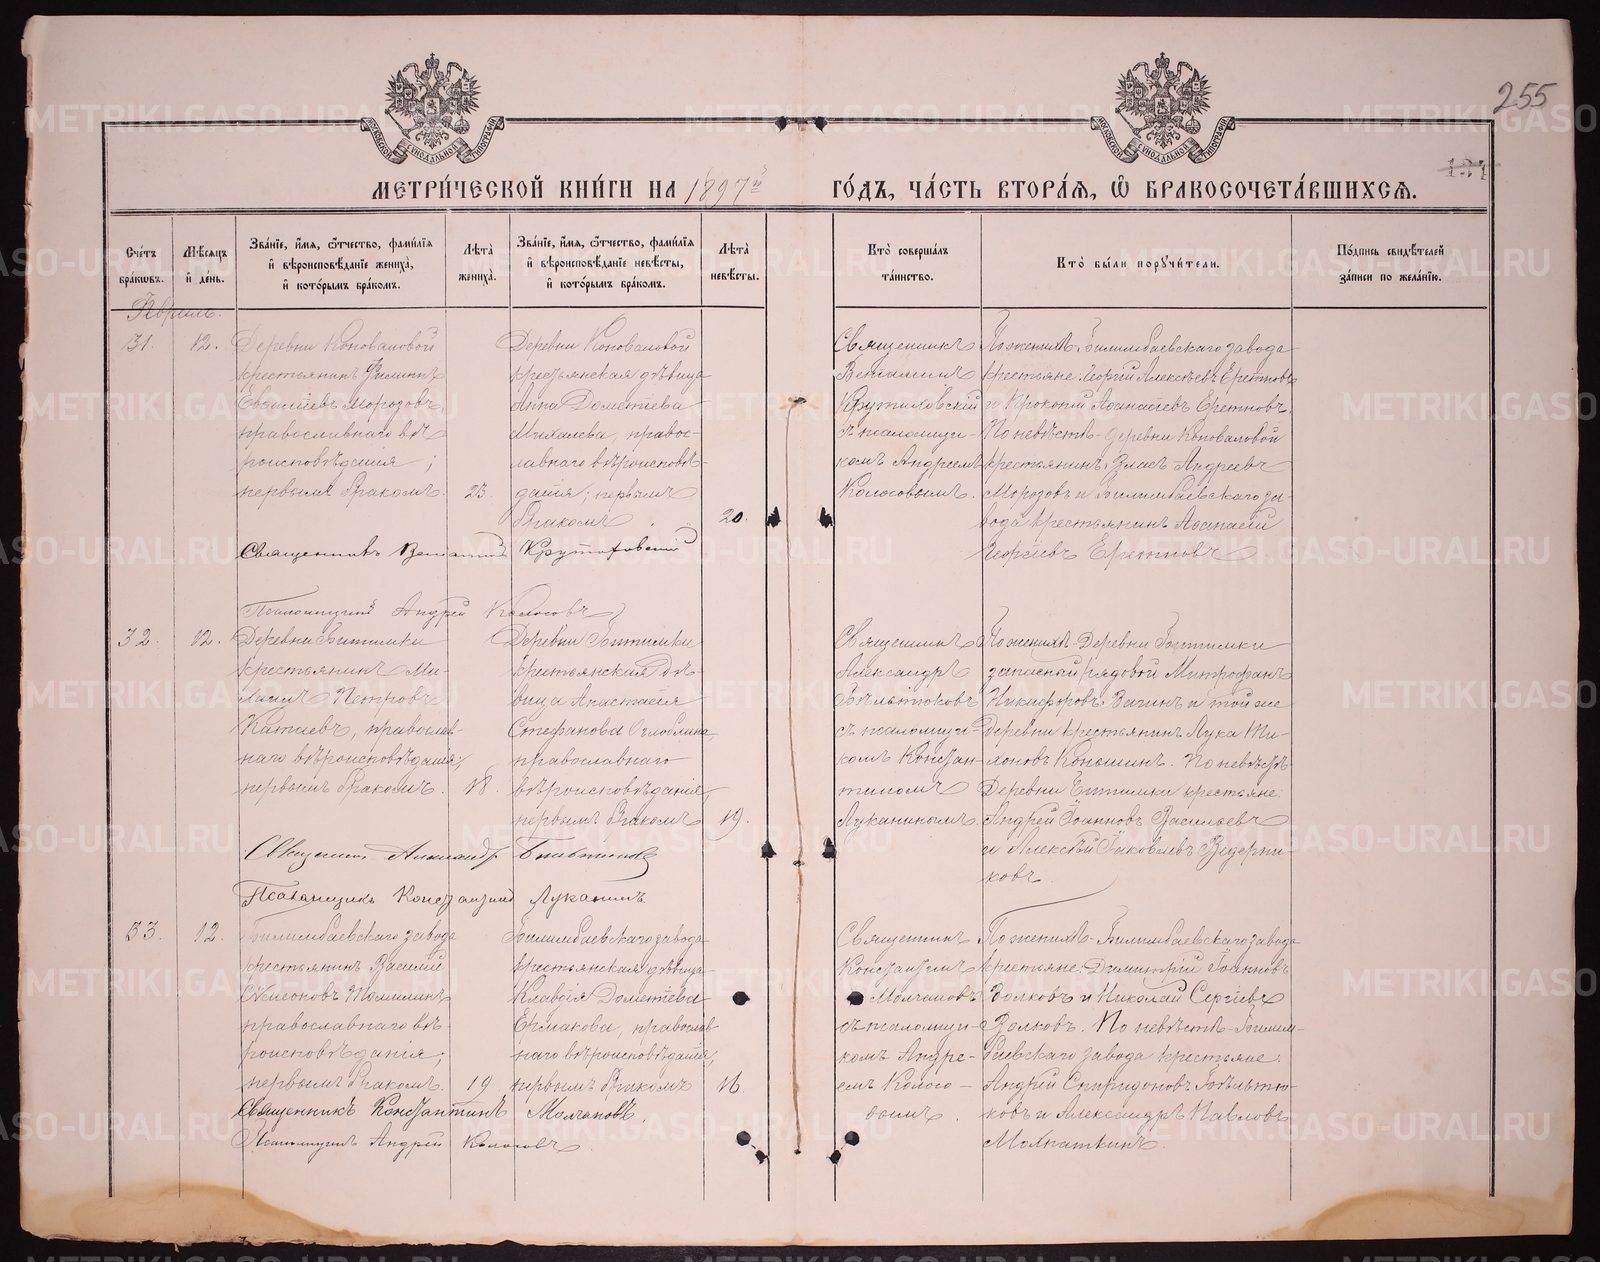 255
МОСКОВСКОЙ СѴНОДАЛЬНОЙ ТИПОГРАФІИ
МОСКОВСКОЙ СѴНОДАЛЬНОЙ ТИПОГРАФІИ
МЕТРИ́ЧЕСКОЙ КНИ́ГИ НА 1897й ГО́ДЪ, ЧА́СТЬ ВТОРА́Ѧ, Ѿ БРАКОСОЧЕТА́ВШИХСѦ.
Сче́тъ бра́кѡвъ.
Мѣ́сѧцъ и҆ де́нь.
Зва́нїе, и҆́мѧ, ѻ҆́тчество, фами́лїѧ и҆ вѣроисповѣ́данїе жениха̀, и҆ кото́рымъ бра́комъ.
Лѣ́та жениха̀.
Зва́нїе, и҆́мѧ, ѻ҆́тчество, фами́лїѧ и҆ вѣроисповѣ́данїе невѣ́сты, и҆ кото́рымъ бра́комъ.
Лѣ́та невѣ́сты.
Кто̀ соверша́лъ та́инство.
Кто̀ бы́ли порꙋчи́тели.
По́дпись свидѣ́телей за́писи по жела́нїю.
Апрѣль.
31.
12.
Деревни Коноваловой
крестьянинъ Филиппъ
Морозовъ,
православнаго вѣ-
роисповѣданія;
первымъ бракомъ.
23.
Деревни Коноваловой
крестьянская дѣвица
Анна Дометіева
Михалева, правос-
лавнаго вѣроисповѣ-
данія; первымъ
бракомъ
20.
Священникъ
Веніаминъ
Крутиховскій
съ псаломщи-
комъ Андреемъ
Колосовымъ.
По женихѣ: Билимбаевскаго завода
крестьяне: Георгій Алексѣевъ
и Прокопій Аѳанасіевъ
По невѣстѣ: деревни Коноваловой
крестьянинъ Власъ Андреевъ
Морозовъ и Билимбаевскаго за-
вода крестьянинъ Аѳанасій
Георгіевъ
Священникъ Веніаминъ Крутиховский
Псаломщикъ Андрей Колосовъ
32.
12.
Деревни Битимки
крестьянинъ Ми-
хаилъ Петровъ
Катаевъ, православ-
наго вѣроисповѣданія;
первымъ бракомъ.
18.
Деревни Битимки
крестьянская дѣ-
вица Анастасія
Стефанова Оглоблина
православнаго
вѣроисповѣданія,
первымъ бракомъ
19.
Священникъ
Александръ
Бѣльтюковъ
съ псаломщи-
комъ Констан-
тиномъ
Луканинымъ.
По женихѣ: Деревни Битимки
запасной рядовой Митрофанъ
Никифоровъ Вагинъ и той же
деревни крестьянинъ Лука Ти-
хоновъ Коньшинъ. По невѣстѣ:
Деревни Битимки крестьяне:
Андрей Іоанновъ Васильевъ
и Алексѣй Іаковлевъ Ведерни-
ковъ.
Священникъ Александръ Бѣльтюковъ
Псаломщикъ Константинъ Луканинъ
33.
12.
Билимбаевскаго завода
крестьянинъ Василій
Сѵмеоновъ Томилинъ
православнаго вѣ-
роисповѣданія;
первымъ бракомъ.
19
Билимбаевскаго завода
крестьянская дѣвица
Клавдія Дометіева
Ермакова, православ-
наго вѣроисповѣданія,
первымъ бракомъ
16.
Священникъ
Константинъ
Молчановъ
съ псаломщи-
комъ Андре-
емъ Колосо-
вымъ.
По женихѣ: Билимбаевскаго завода
крестьяне: Димитрій Іоанновъ
Волковъ и Николай Сергіевъ
Волковъ. По невѣстѣ: Билим-
баевскаго завода крестьяне:
Андрей Спиридоновъ Бѣльтю-
ковъ и Александръ Павловъ
Священникъ Константинъ Молчановъ.
Псаломщикъ Андрей Колосовъ